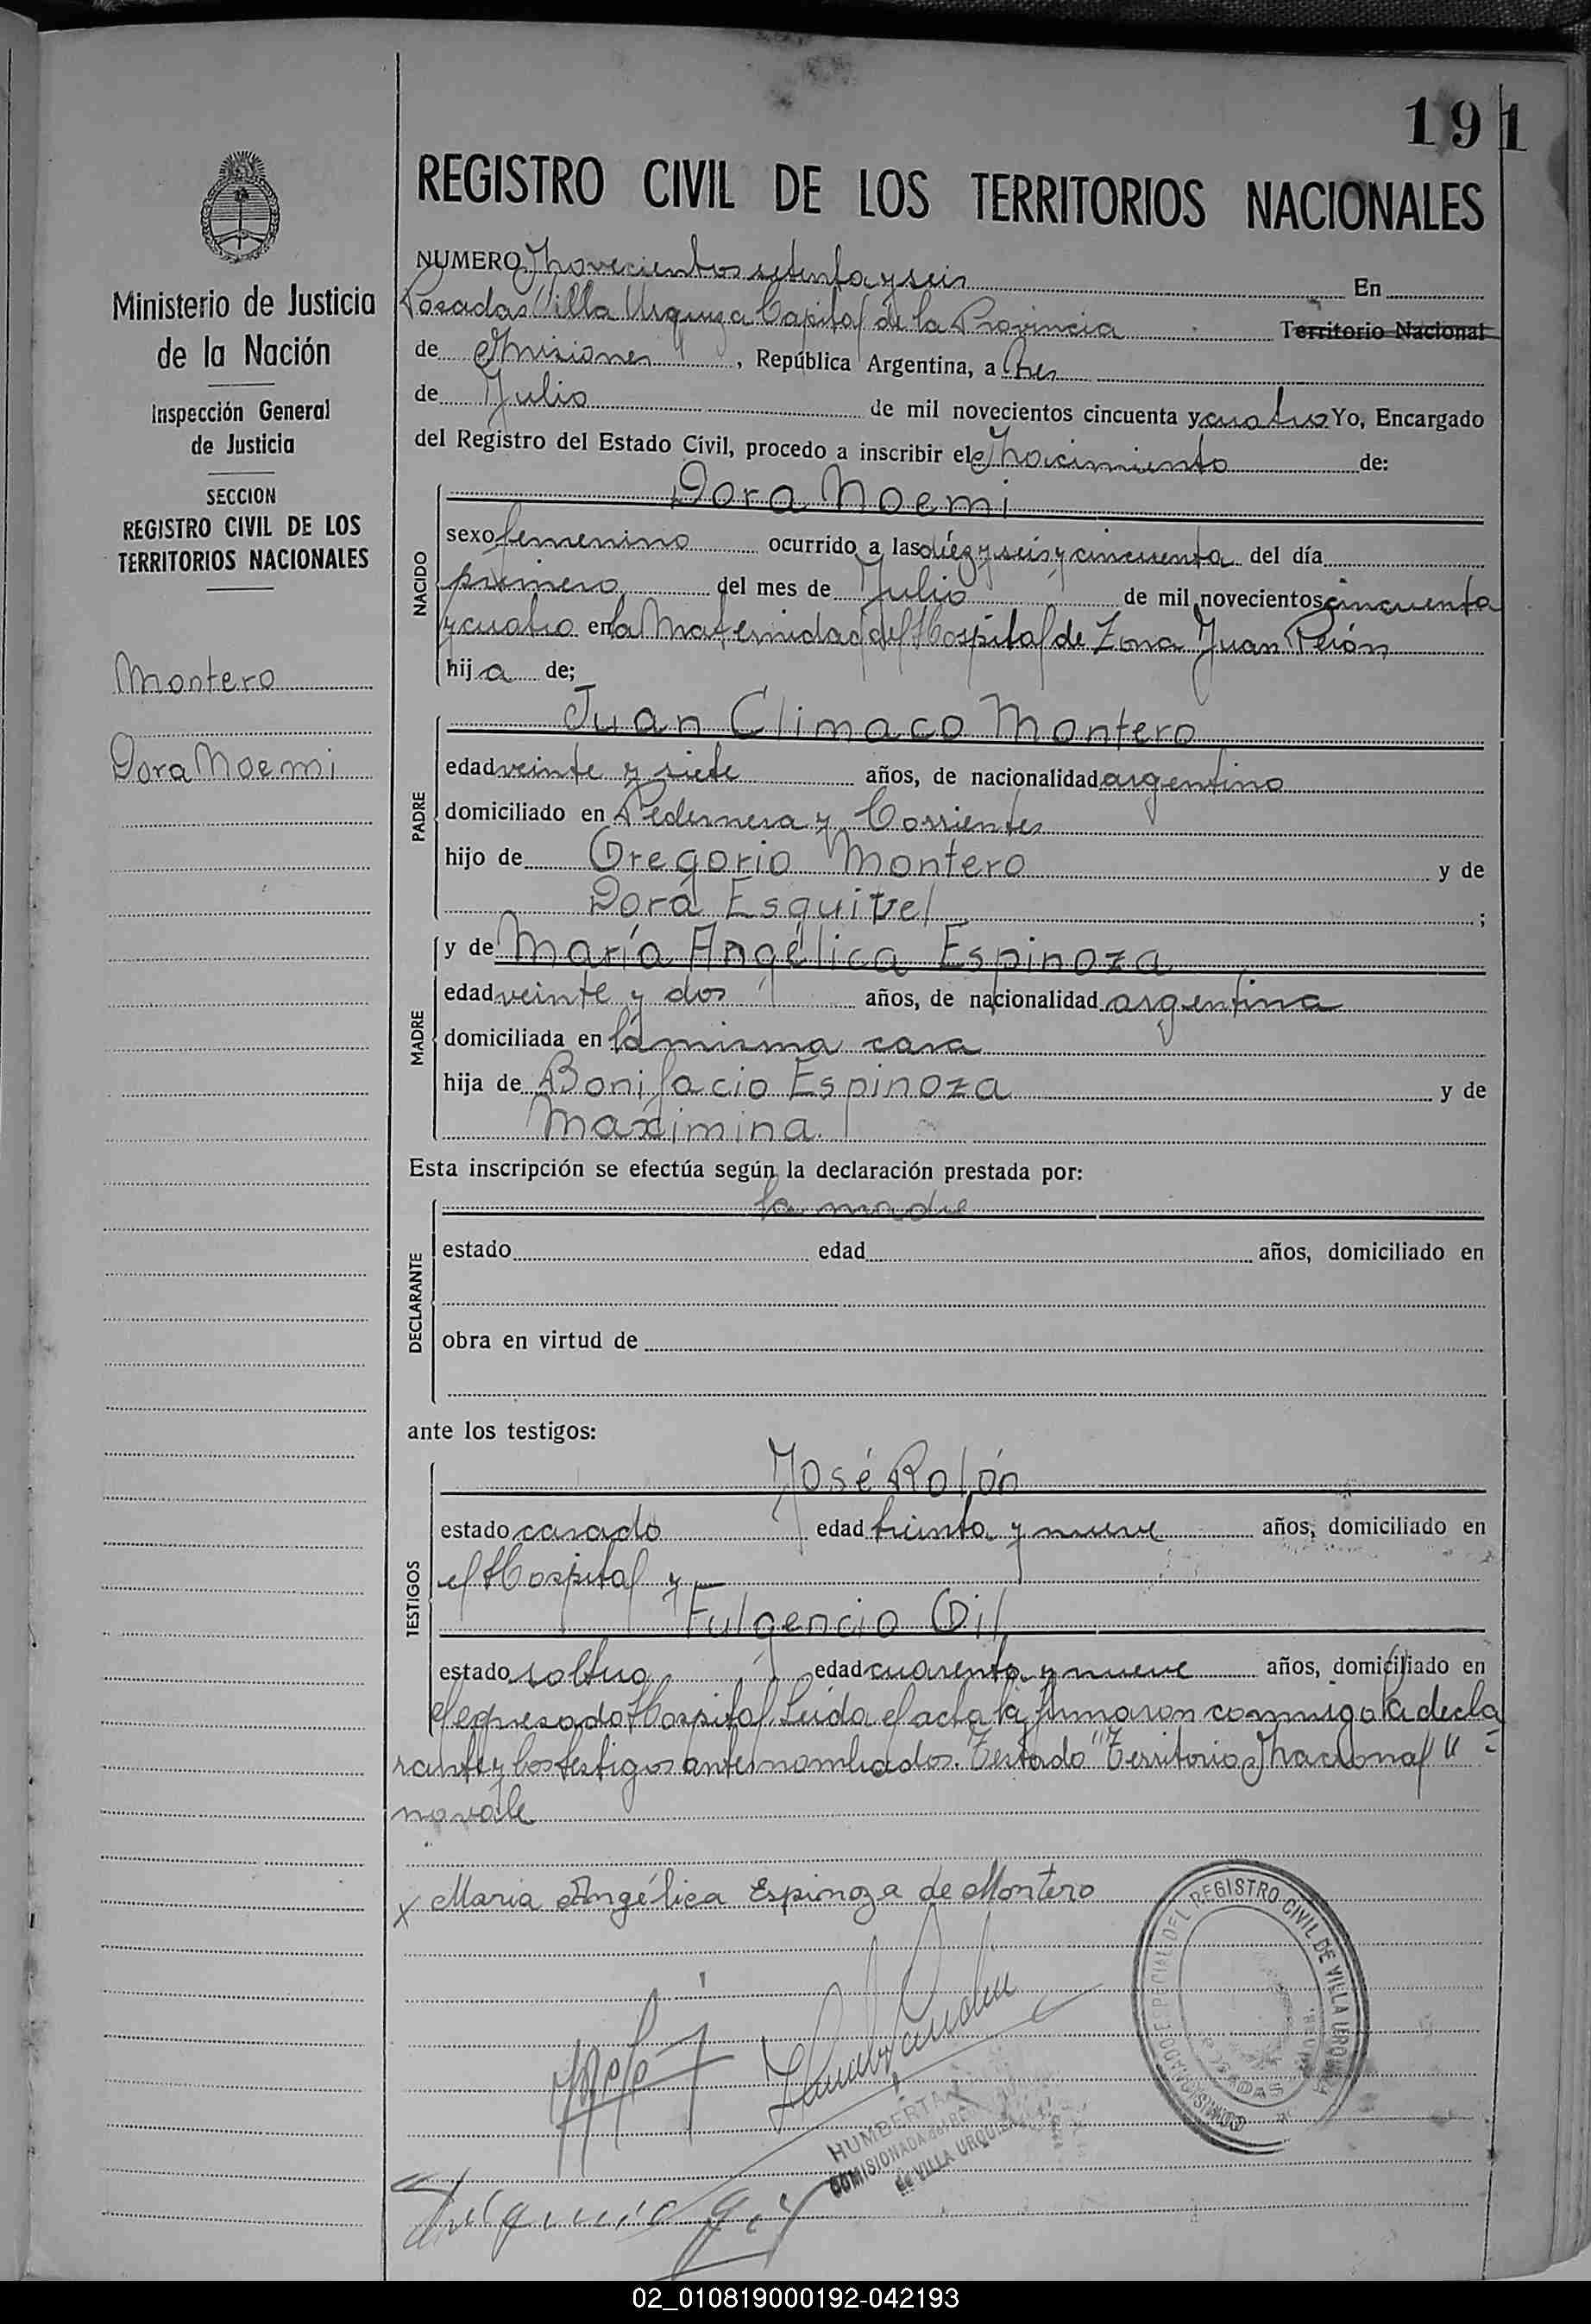 191
REGISTRO CIVIL DE LOS TERRITORIOS NACIONALES
Ministerio de Justicia
de la Nación
Inspección General
de Justicia
SECCION
REGISTRO CIVIL DE LOS
TERRITORIOS NACIONALES
Montero
Dora Noemi
NUMERO Novecientos setenta y seis En
Posadas Villa Urquiza Capital de la Provincia Territorio Nacional
de Misiones, República Argentina, a tres
de Julio de mil novecientos cincuenta y cuatro Yo, Encargado
del Registro del Estado Civil, procedo a inscribir el Nacimiento de:
NACIDO
Dora Noemi
sexo femenino ocurrido a las diez y seis y cincuenta del día
primero del mes de Julio de mil novecientos cincuenta
y cuatro en la Maternidad del Hospital de Zona Juan Perón
hija de;
PADRE
Juan Climaco Montero
edad veinte y siete años, de nacionalidad argentino
domiciliado en Pedernera y Corrientes
hijo de Gregorio Montero y de
Dora Esquivel ;
MADRE
y de María Angélica Espinoza
edad veinte y dos años, de nacionalidad argentina
domiciliada en la misma casa
hija de Bonifacio Espinoza y de
Maximina
Esta inscripción se efectúa según la declaración prestada por:
DECLARANTE
la madre
estado edad años, domiciliado en
obra en virtud de
ante los testigos:
TESTIGOS
José Rolón
estado casado edad treinta y nueve años, domiciliado en
el Hospital y
Fulgencio Gil
estado soltero edad cuarenta y nueve años, domiciliado en
el expresado Hospital. Leida el acta la firmaron conmigo la decla
rante y los testigos antes nombrados. Testado "Territorio Nacional" -
no vale
x Maria Angélica Espinoza de Montero
COMISIONADO ESPECIAL DEL REGISTRO CIVIL DE VILLA URQUIZA
POSADAS
HUMBERTA
COMISIONADA del RE
de VILLA URQUIZA
Fulgencio Gil
02_010819000192-042193